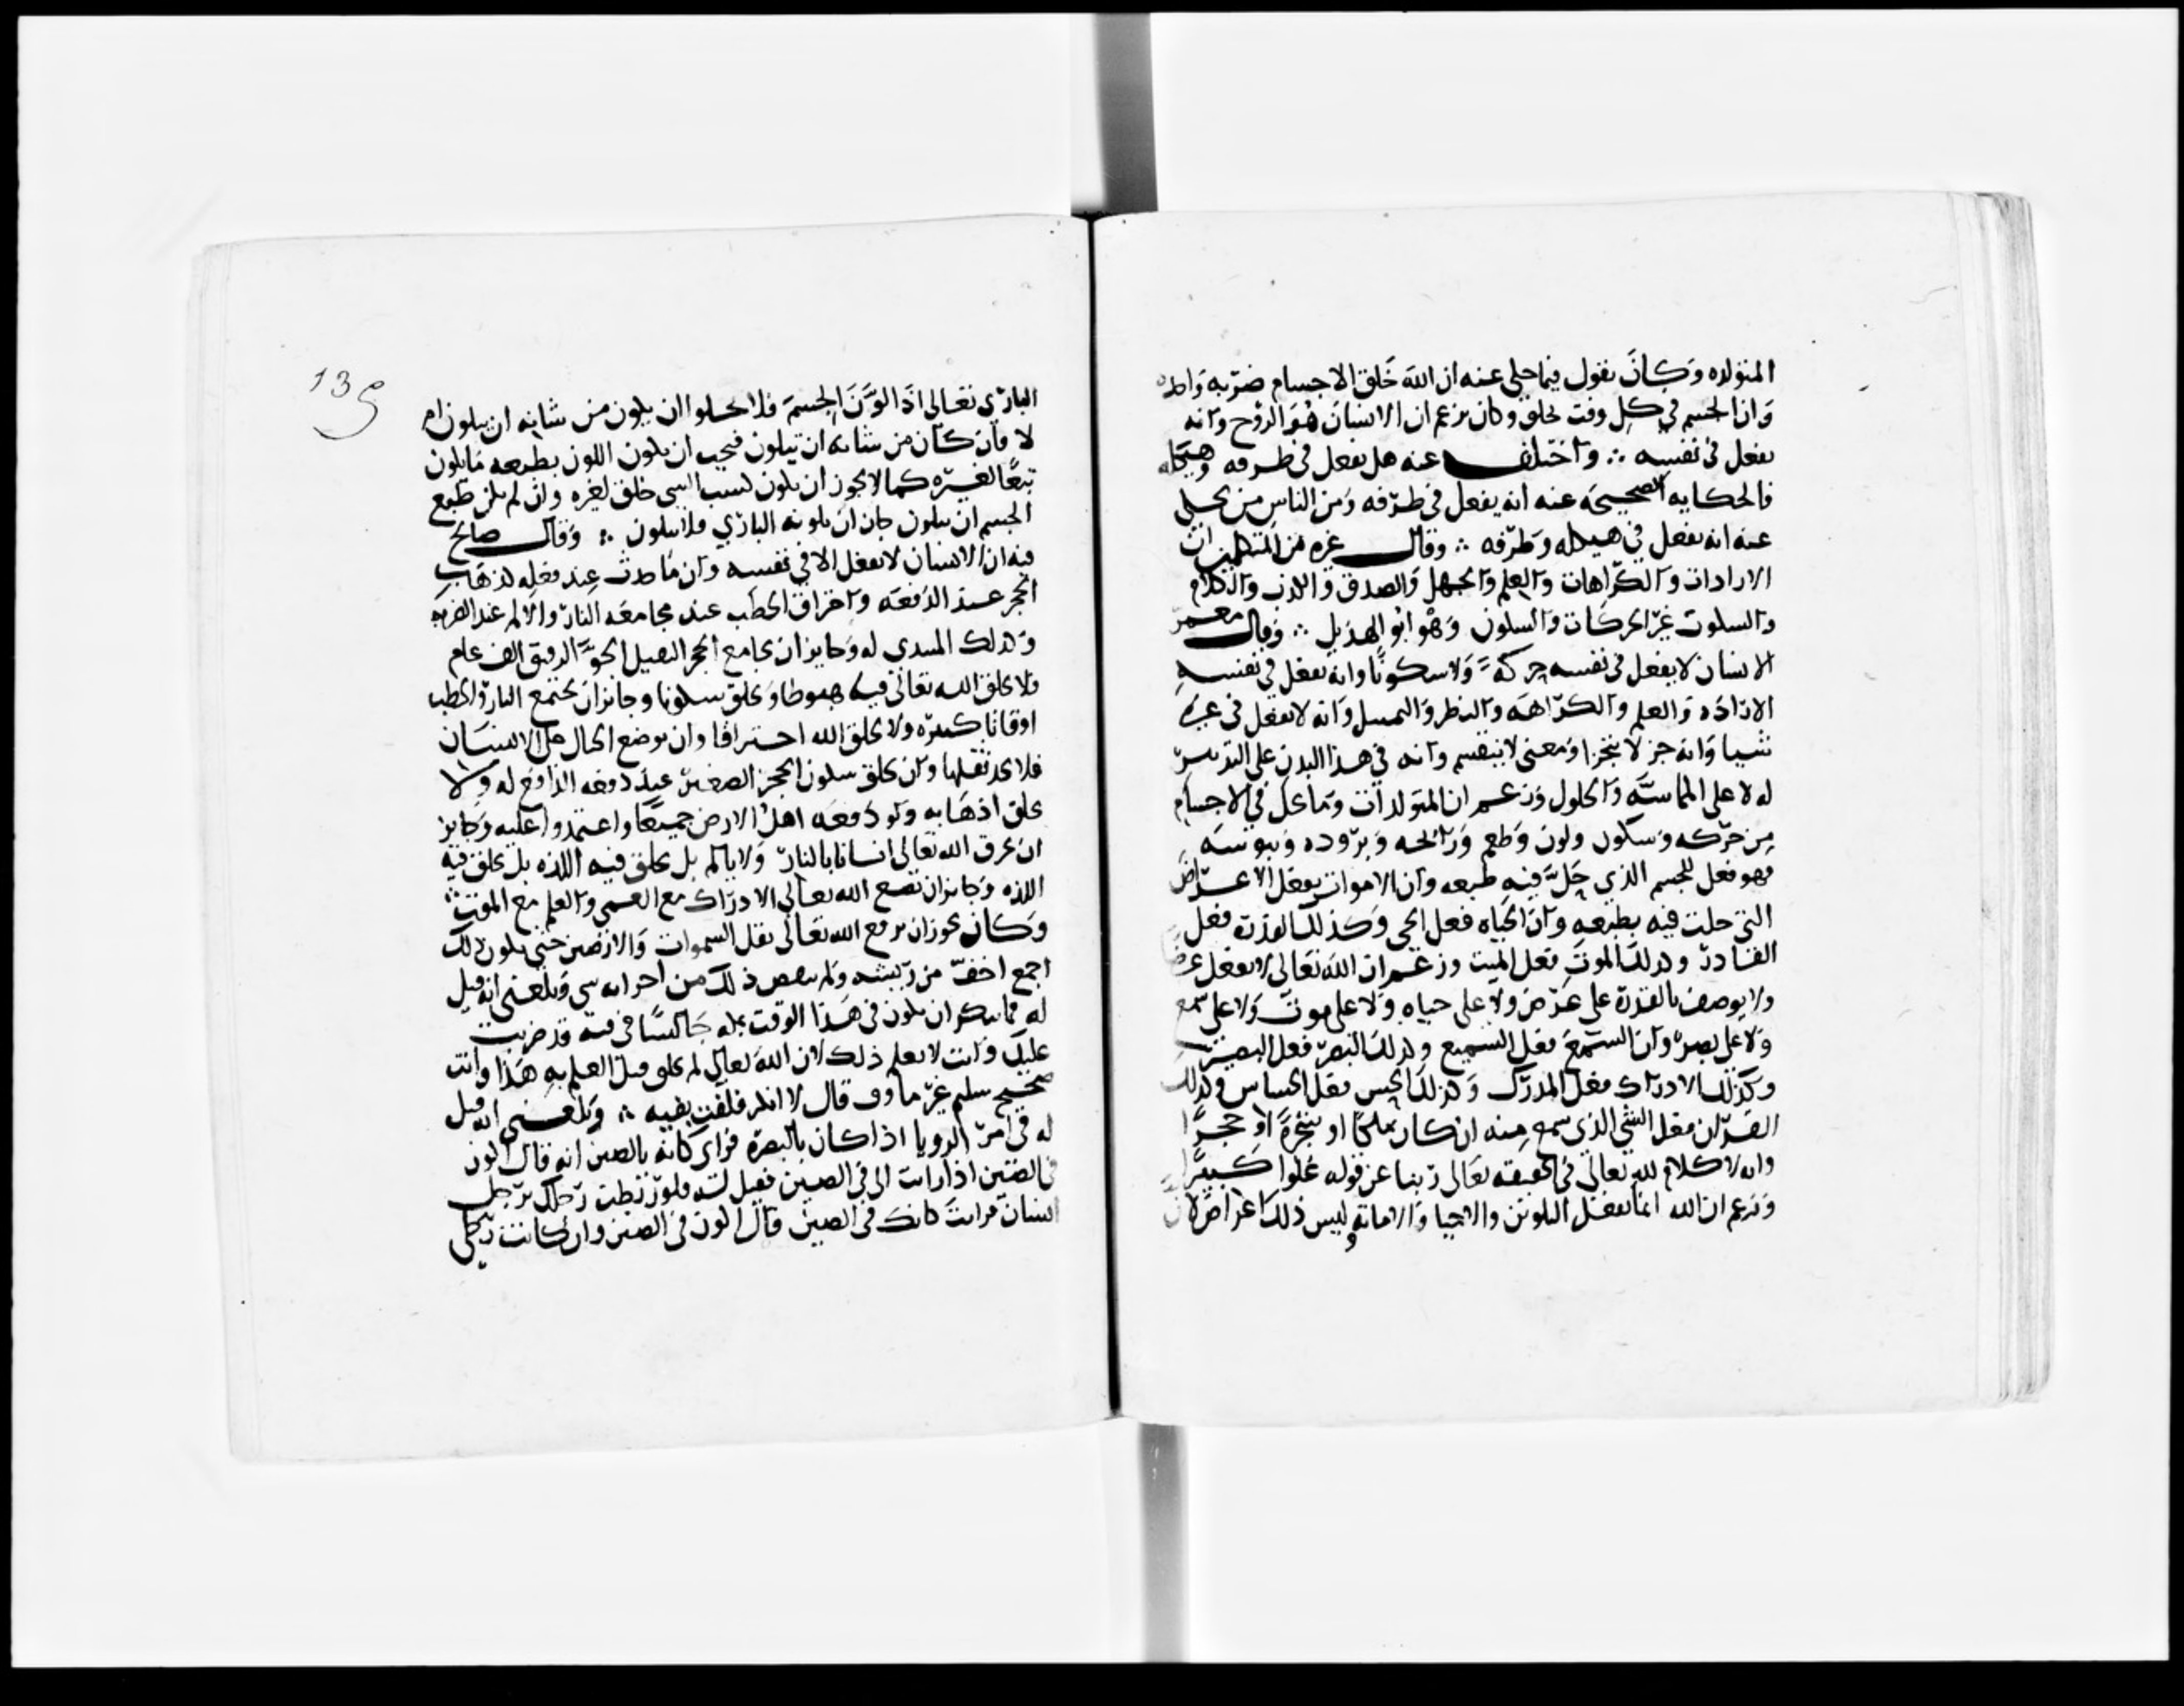 المتولده وكان يقول فيما حكى عنه ان الله خلق الاجسام ضربه واحده
وان الجسم في كل وقت يخلق وكان يزعم ان الانسان هو الروح وانه
يفعل في نفسه ∴ واختلف عنه هل يفعل في ظرفه وهيكله
فالحكايه الصحيحه عنه انه يفعل في ظرفه ومن الناس من يحكي
عنه انه يفعل في هيكله وظرفه ∴ وقال غيره من المتكلمين ان
الارادات والكراهات والعلم والجهل والصدق والكذب والكلام
والسكوت غير الحركات والسكون وهو ابو الهذيل ∴ وقال معمر
الانسان لا يفعل في نفسه حركة ولا سكونا وانه يفعل في نفسه
الاراده والعلم والكراهه والنظر والتمثيل وانه لا يفعل في غيره
شيا وانه جز لا يتجزا ومعنى لا ينقسم وانه في هذا البدن على التدبير
له لا على المماسه والحلول وزعم ان المتولدات وما يحل في الاجسام
من حركه وسكون ولون وطعم ورائحه وبروده ويبوسه
فهو فعل للجسم الذي حل فيه طبعه وان الاموات يفعل الاعراض
التي حلت فيه بطبعه وان الحياه فعل الحي وكذلك القدرة فعل
القادر وكذلك الموت فعل الميت وزعم ان الله تعالى لا يفعل عرضا
ولا يوصف بالقدرة على عرض ولا على حياه ولا على موت ولا على سمع
ولا على بصر وان السمع فعل السميع وكذلك البصر فعل البصير
وكذلك الادراك فعل المدرك وكذلك الحس فعل الحساس وكذلك
القران فعل الشي الذي سمع منه ان كان ملكا او شجرة او حجرا
وانه لا كلام لله تعالى في الحقيقه تعالى ربنا عن قوله علوا كبيرا
وزعم ان الله انما يفعل التلوين والاحيا والاماتة وليس ذلك اعراض لان
139
الباري تعالى اذا لون الجسم فلا يخلوا ان يكون من شانه ان يتلون ام
لا فان كان من شانه ان يتلون فيجب ان يكون اللون بطبعه ما يكون
تبعا لغيره كما لا يجوز ان يكون كسب الشي خلق لغيره وان لم يكن طبع
الجسم ان يتلون جاز ان يلونه الباري فلا يتلون ∴ وقال صالح
قبه ان الانسان لا يفعل الا في نفسه وان ما حدث عند فعله لذهاب
الحجر عند الدفعه واحتراق الحطب عند مجامعه النار والالم عند الضربه
وكذلك المبتدي له وجايز ان يجامع الحجر الثقيل الجو الرقيق الف عام
ولا يخلق الله تعالى فيه هبوطا ويخلق سكونا وجائز ان يجتمع النار والحطب
اوقاتا كثيره ولا يخلق الله احتراقا وان توضع الجبال على الانسان
فلا يجد ثقلها وان يخلق سكون الحجر الصغير عند دفعه الدافع له ولا
يخلق اذهابه ولو دفعه اهل الارض جميعا واعتمدوا عليه وجايز
ان يحرق الله تعالى انسانا بالنار ولا يالم بل يخلق فيه اللذه بل يخلق فيه
اللذه وجايز ان يضع الله تعالى الادراك مع العمى والعلم مع الموت ∴
وكان يجوز ان يرفع الله تعالى ثقل السموات والارضين حتى يكون ذلك
اجمع اخف من ريشه ولم ينقص ذلك من اجزائه شي وبلغني انه قيل
له فما تنكر ان يكون في هذا الوقت بمكه جالسا في قبه قد ضربت
عليك وانت لا تعلم ذلك لان الله تعالى لم يخلق فيك العلم به هذا وانت
صحيح سليم غير ماووف قال لا انكر فلقب بقبه ∴ وبلغني انه قيل
له في امر الرويا اذا كان بالبصرة فراى كانه بالصين انه قال اكون
في الصين اذا رايت اني في الصين فقيل له فلو ربطت رجلك برجل
انسان فرايت كانك في الصين قال اكون في الصين وان كانت رجلي